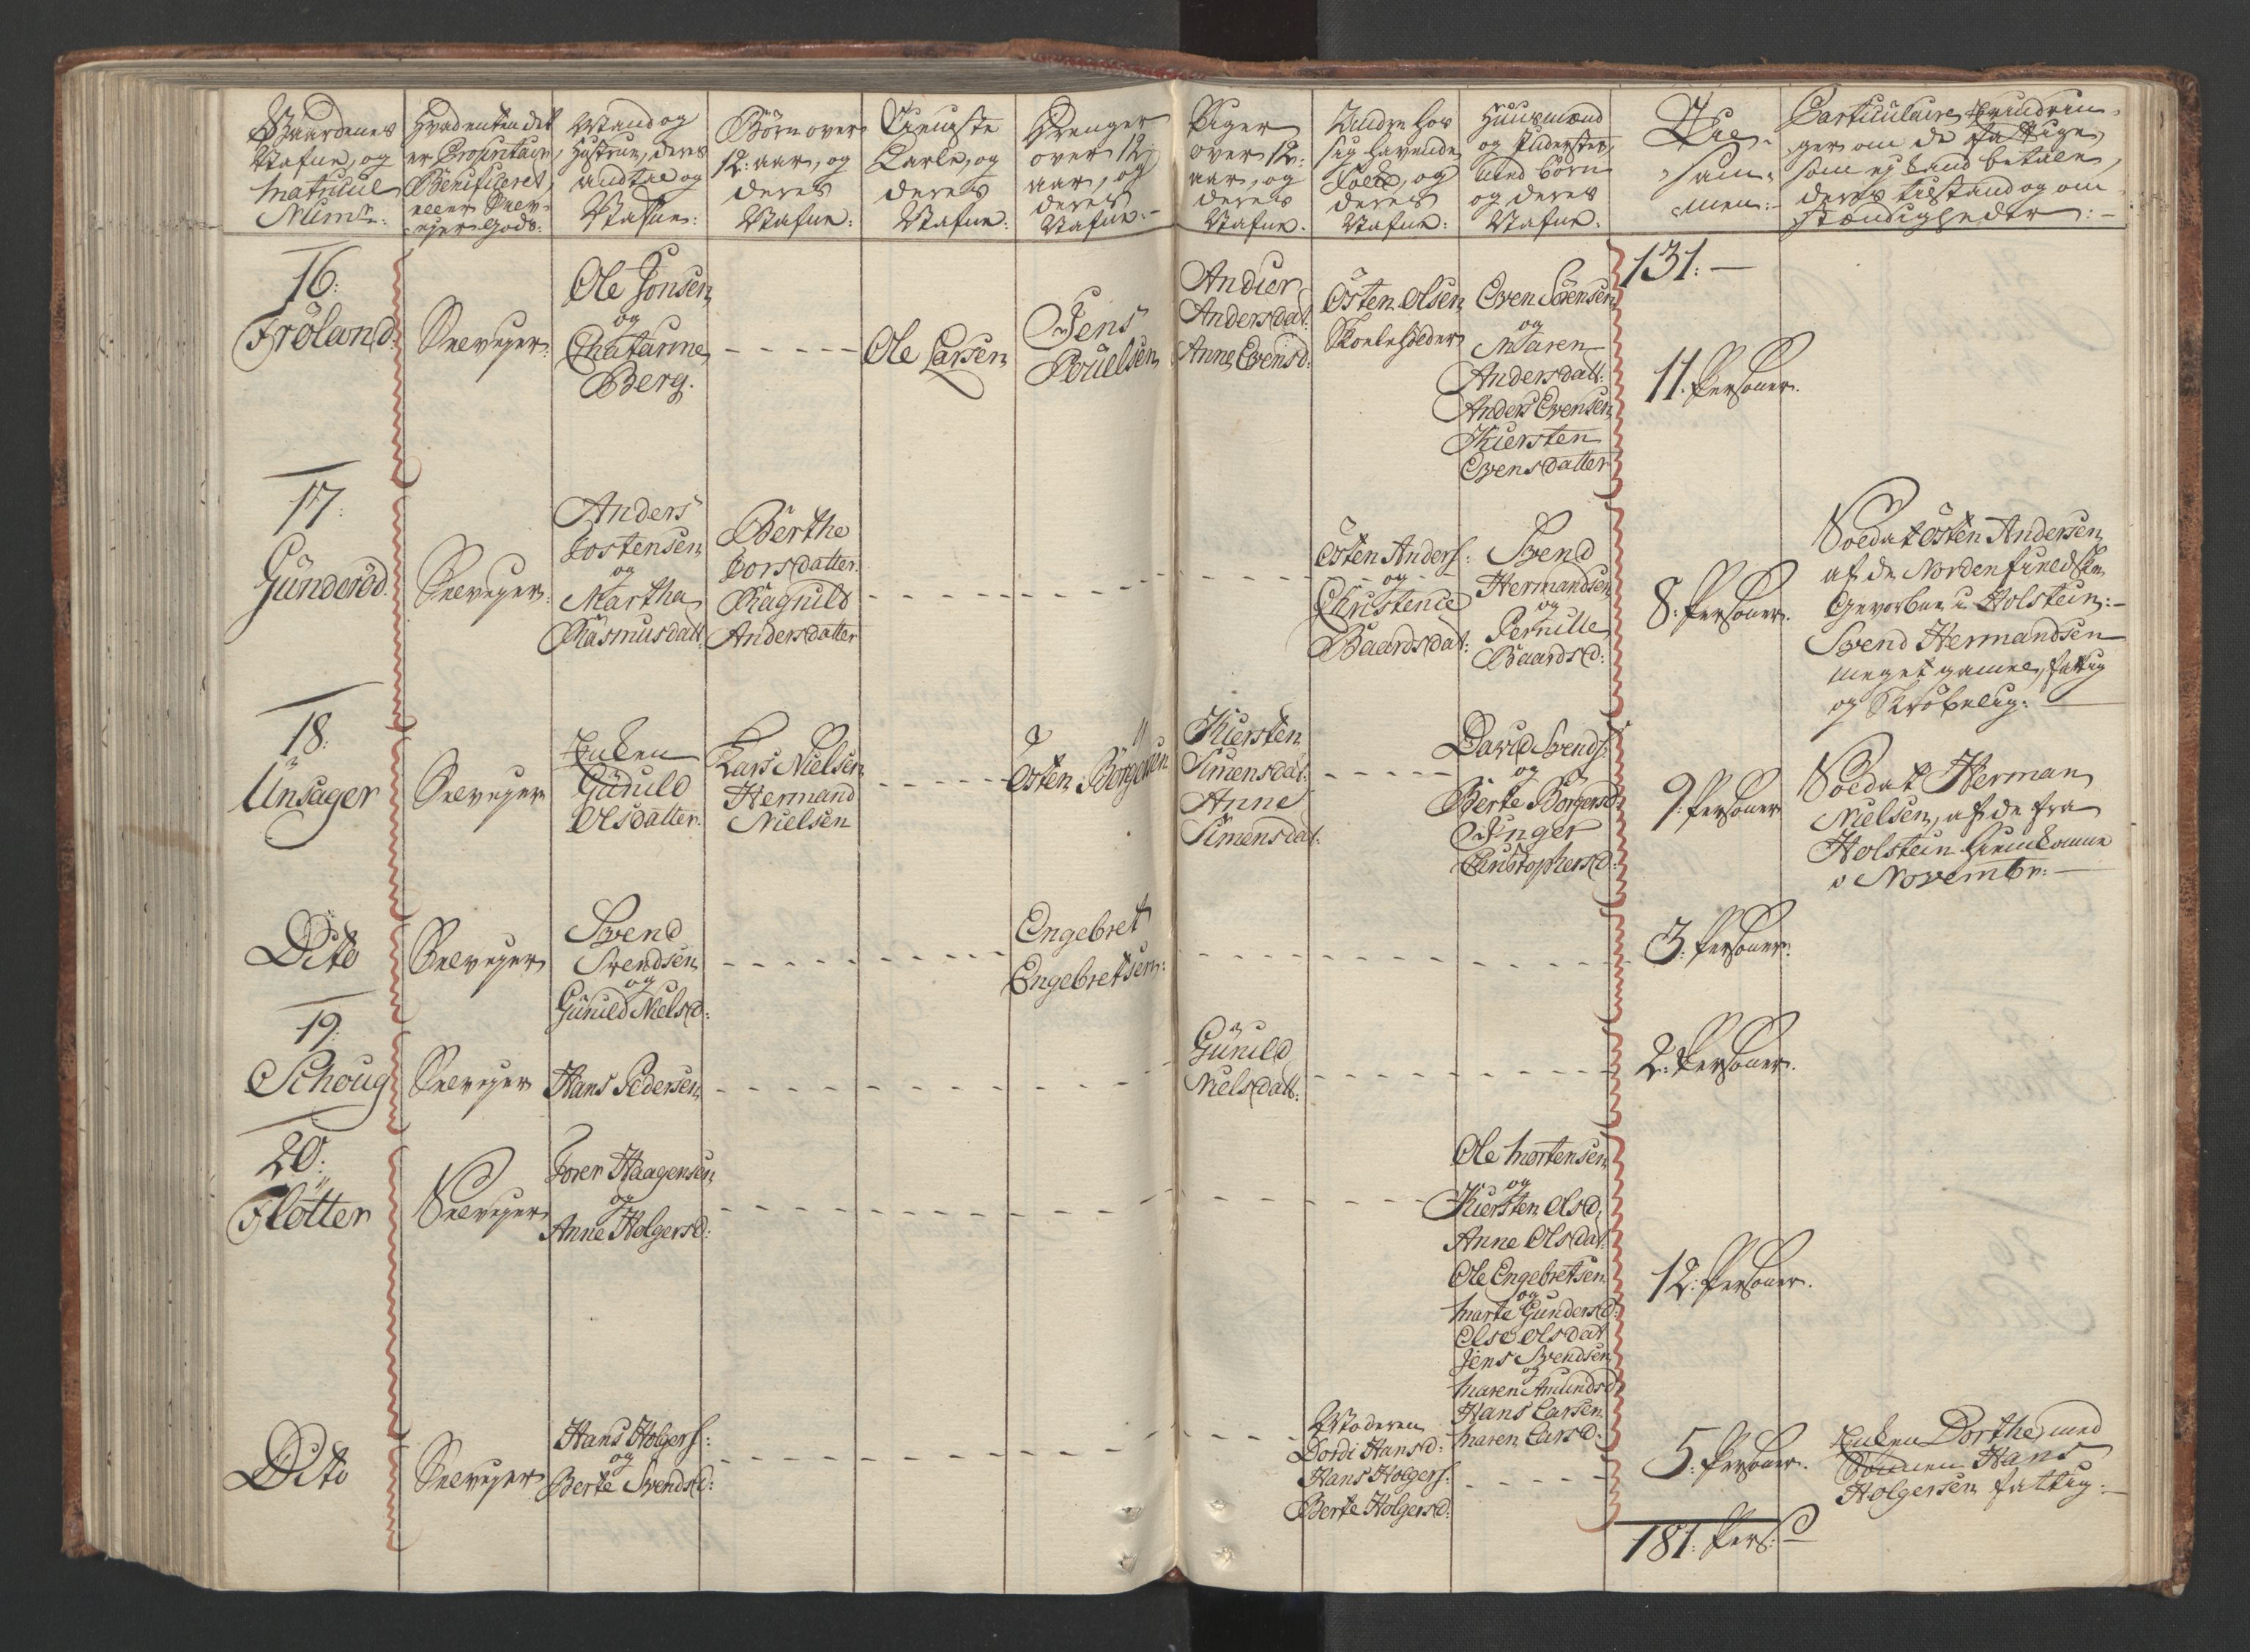 Gaardenes
Nafne, og
Matricul
Numr:
Hvad enten det
er Propritair,
Beneficeret,
eller Selv-
ejer Gods:
Mand og
Hustrue, deres
andtal og
Nafne:
Börn over
12: aar, og
deres
Nafne:
Tieneste
Karle, og
deres
Nafne:
Drenger
over 12:
aar, og
deres
Nafne:
Piger
over 12:
aar, og
deres
Nafne.
Andre hos
sig havende
Folck, og
deres
Nafne:
Huusmænd
og Inderster,
med börn
og deres
Nafne.
Til-
sam-
men:
Particulaire Erindrin-
ger om de fattige,
som ej kand betale,
deres tilstand og om-
stændigheder:
131:
16:
Fröland.
Selvejer.
Ole Jonsen
og
Chatarine
Berg.
Ole Larsen
Jens
Pouelsen
Andier
Andersdat:
Anne Evensd:
Östen Olsen
Skoeleholder
Even Sörensen
og
Maren
Andersdatt:
Anders Evensen
Kiersten
Evensdatter
11. Personer.
17:
Gunderöd.
Selvejer.
Anders
Tostensen
og
Martha
Rasmusdatt:
Berthe
Torsdatter.
Ragnild
Andersdatter
Östen Anders:
og
Christence
Baardsdat:
Svend
Hermandsen
og
Pernille
Baardsd:
8: Personer.
Soldat Östen Andersen
af de Nordenfieldske
Gevorbne i Holstein:
Svend Hermandsen
meget gamel, fattig
og Skröbelig:
18:
Unsager
Selvejer
Enken
Gunild
Olsdatter.
Lars Nielsen
Hermand
Nielsen
Östen Börgesen
Kiersten
Simensdat:
Anne
Simensdat:
David Svends:
og
Berte Börgersd:
Inger
Christophersd:
9: Personer
Soldat Herman
Nielsen, af de fra
Holstein hiemkomne
i Novembr:
Dito
Selvejer
Svend
Svendsen
og
Gunild Nielsd:
Engebret
Engebretsen:
3: Personer.
19:
Schoug
Selvejer
Hans Pedersen
Gunild
Nielsdatt:
2: Personer.
20:
Flötter
Selvejer
Torer Haagensen
og
Anne Holgersd:
Ole Mortensen
og
Kiersten Olsd:
Anne Olsdat:
Ole Engebretsen
og
Marte Gundersd:
Olse Olsdat
Jens Svendsen
og
Maren Amundsd:
Hans Larsen
Maren Larsd:
12: Personer.
Dito
Selvejer
Hans Holgers:
og
Berte Svendsd:
Moderen
Dordi Hansd:
Hans Holgers:
Berte Holgersd:
5: Personer.
Enken Dorthe, med
Sönnen Hans
Holgersen fattig:
181: Pers: